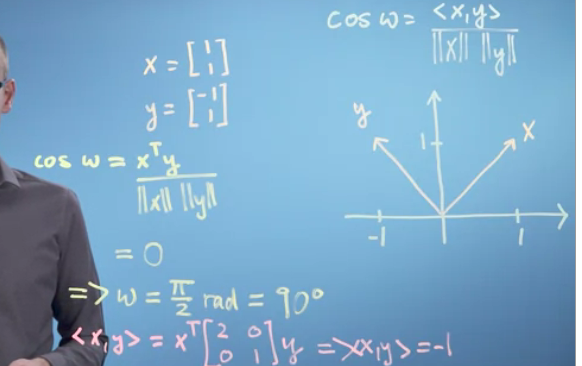 cos ω = <x,y> / ||x|| ||y||
x = [1 1]
y = [-1 1]
cos ω = xᵀy / ||x|| ||y||
= 0
=> ω = π/2 rad = 90°
<x,y> = xᵀ[2 0 0 1]y => <x,y> = -1
y
x
1
-1
1